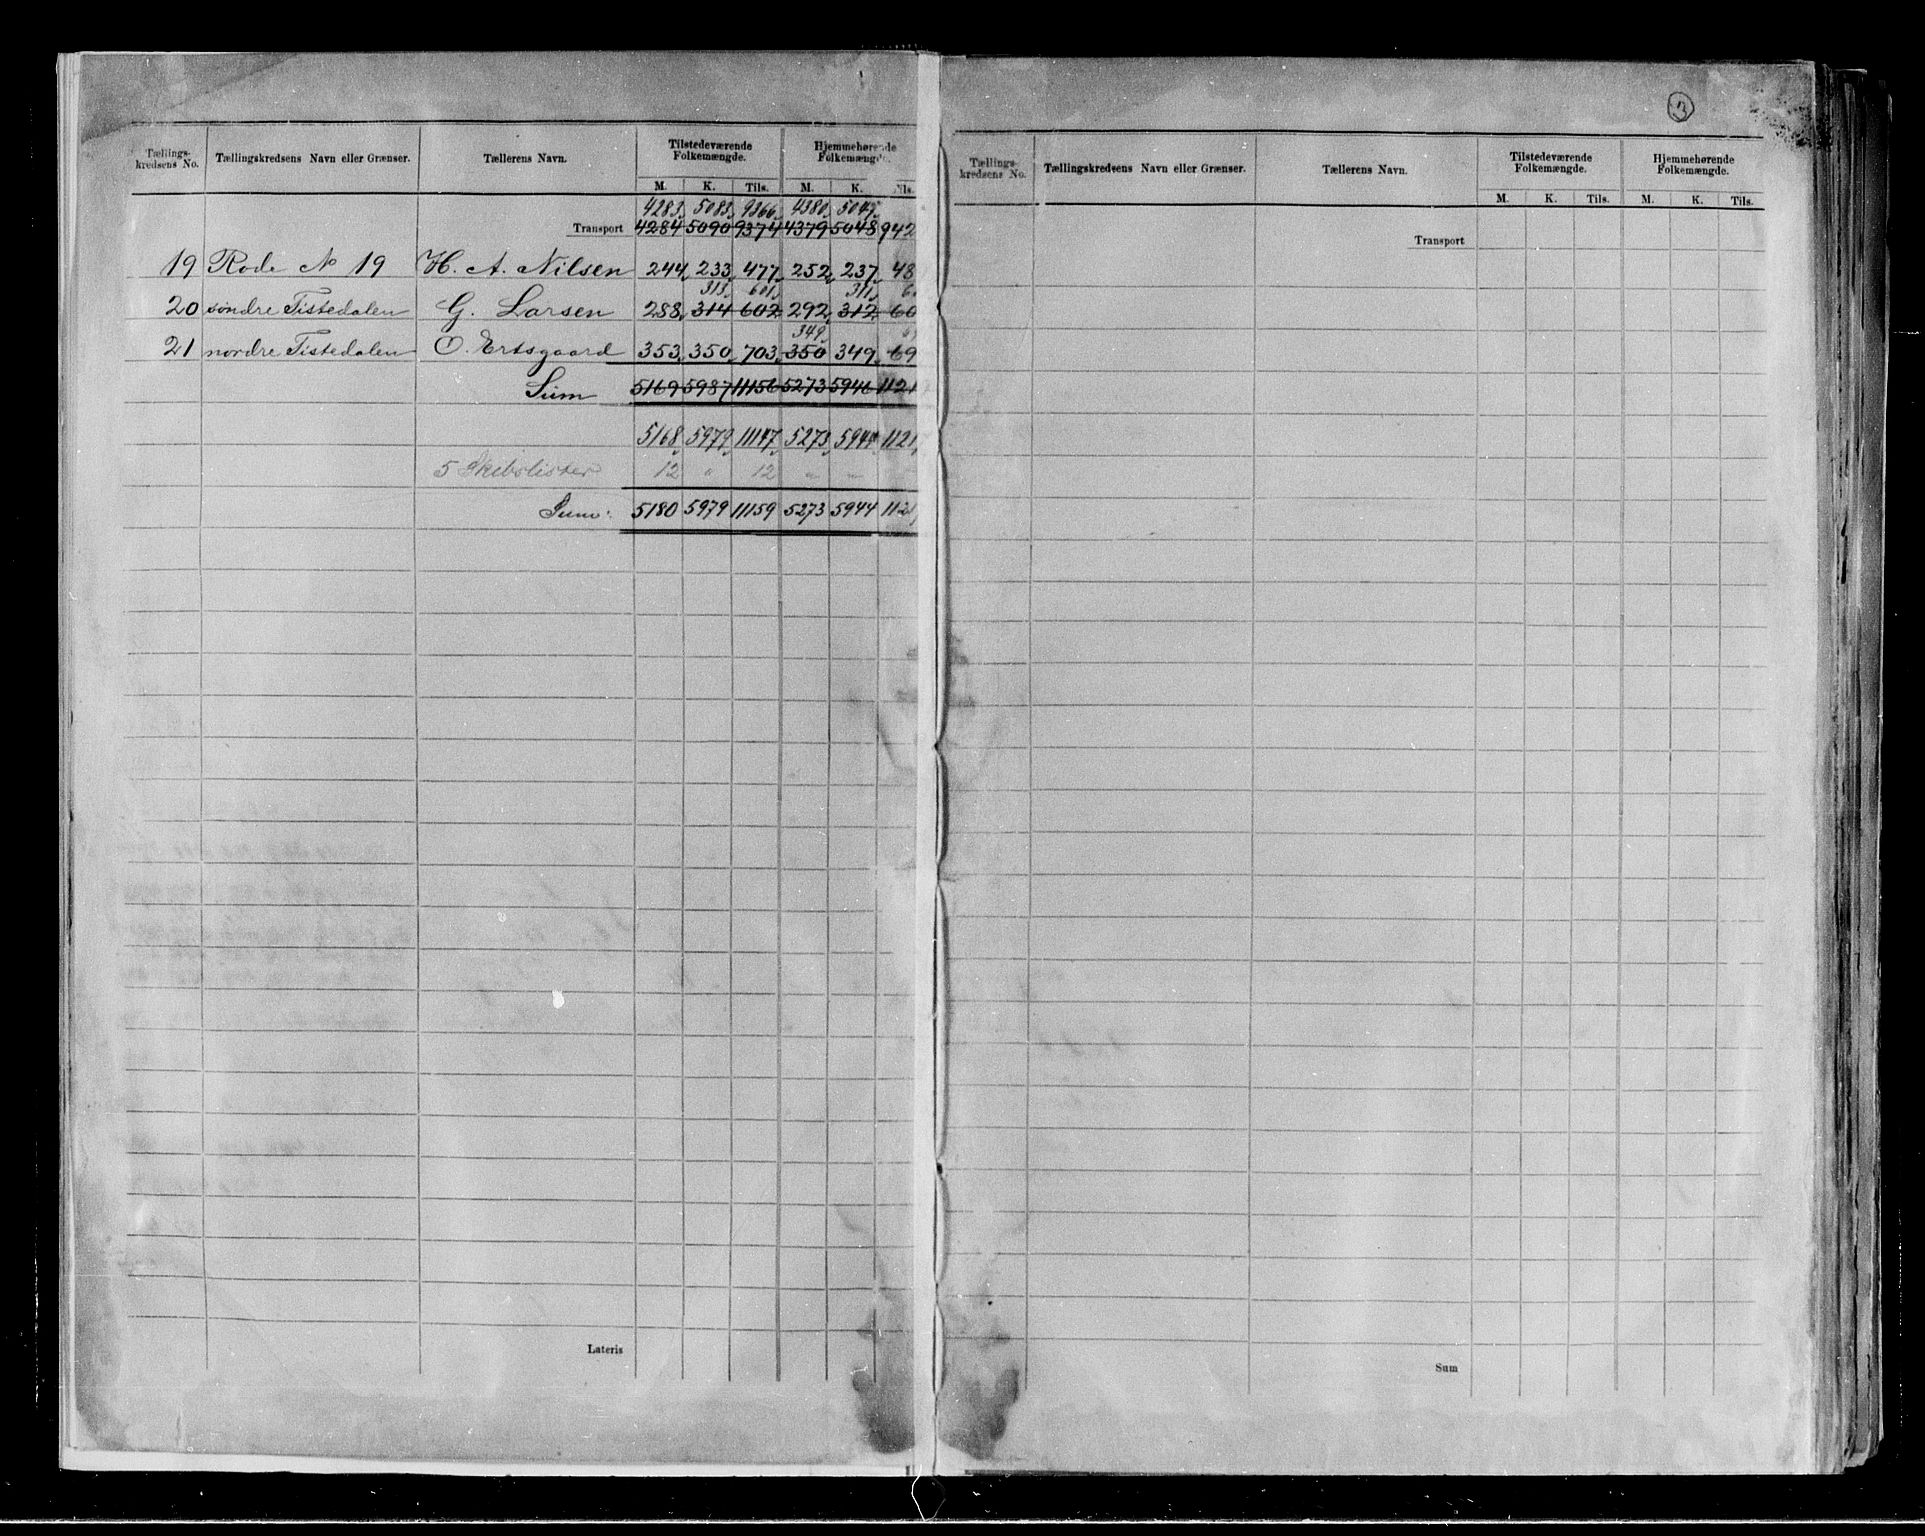 Tællings-
kredsens No. Tællingskredsens Navn eller Grænser. Tællerens Navn. Tilstedeværende Folkemængde. Hjemmehørende Folkemængde.
M. K. Tils. M. K. Tils.
4283 5083 9366 4380 5047
Transport 4284 5090 9374 4379 5048 942
19 Rode No 19 H. A. Nilsen 244 233 477 252 237 48
313 601 311 6
20 søndre Tistedalen G. Larsen 288 314 602 292 312 60
349
21 nordre Tistedalen O. Ertsgaard 353 350 703 350 349 69
Sum 5169 5987 11156 5273 5946 1121
5168 5979 11147 5273 5944 11217
5 Skibslister 12 " 12 " "
Sum: 5180 5979 11159 5273 5944 11217
Lateris
3
Tællings-
kredsens No. Tællingskredsens Navn eller Grænser. Tællerens Navn. Tilstedeværende Folkemængde. Hjemmehørende Folkemængde.
M. K. Tils. M. K. Tils.
Transport
Sum